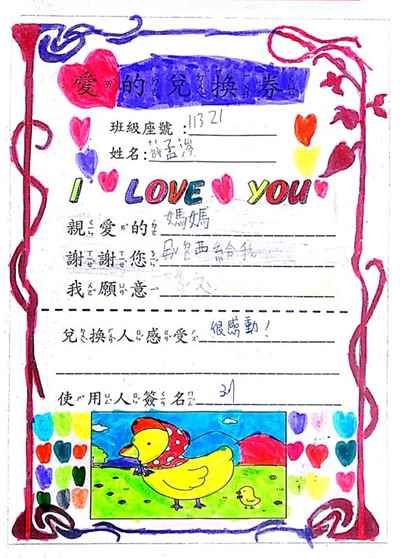 愛的兌換券
班級座號：11321
姓名：薛孟涔
I LOVE YOU
親愛的媽媽
謝謝您 給我
我願意
兌換人感受 很感動！
使用人簽名 刘